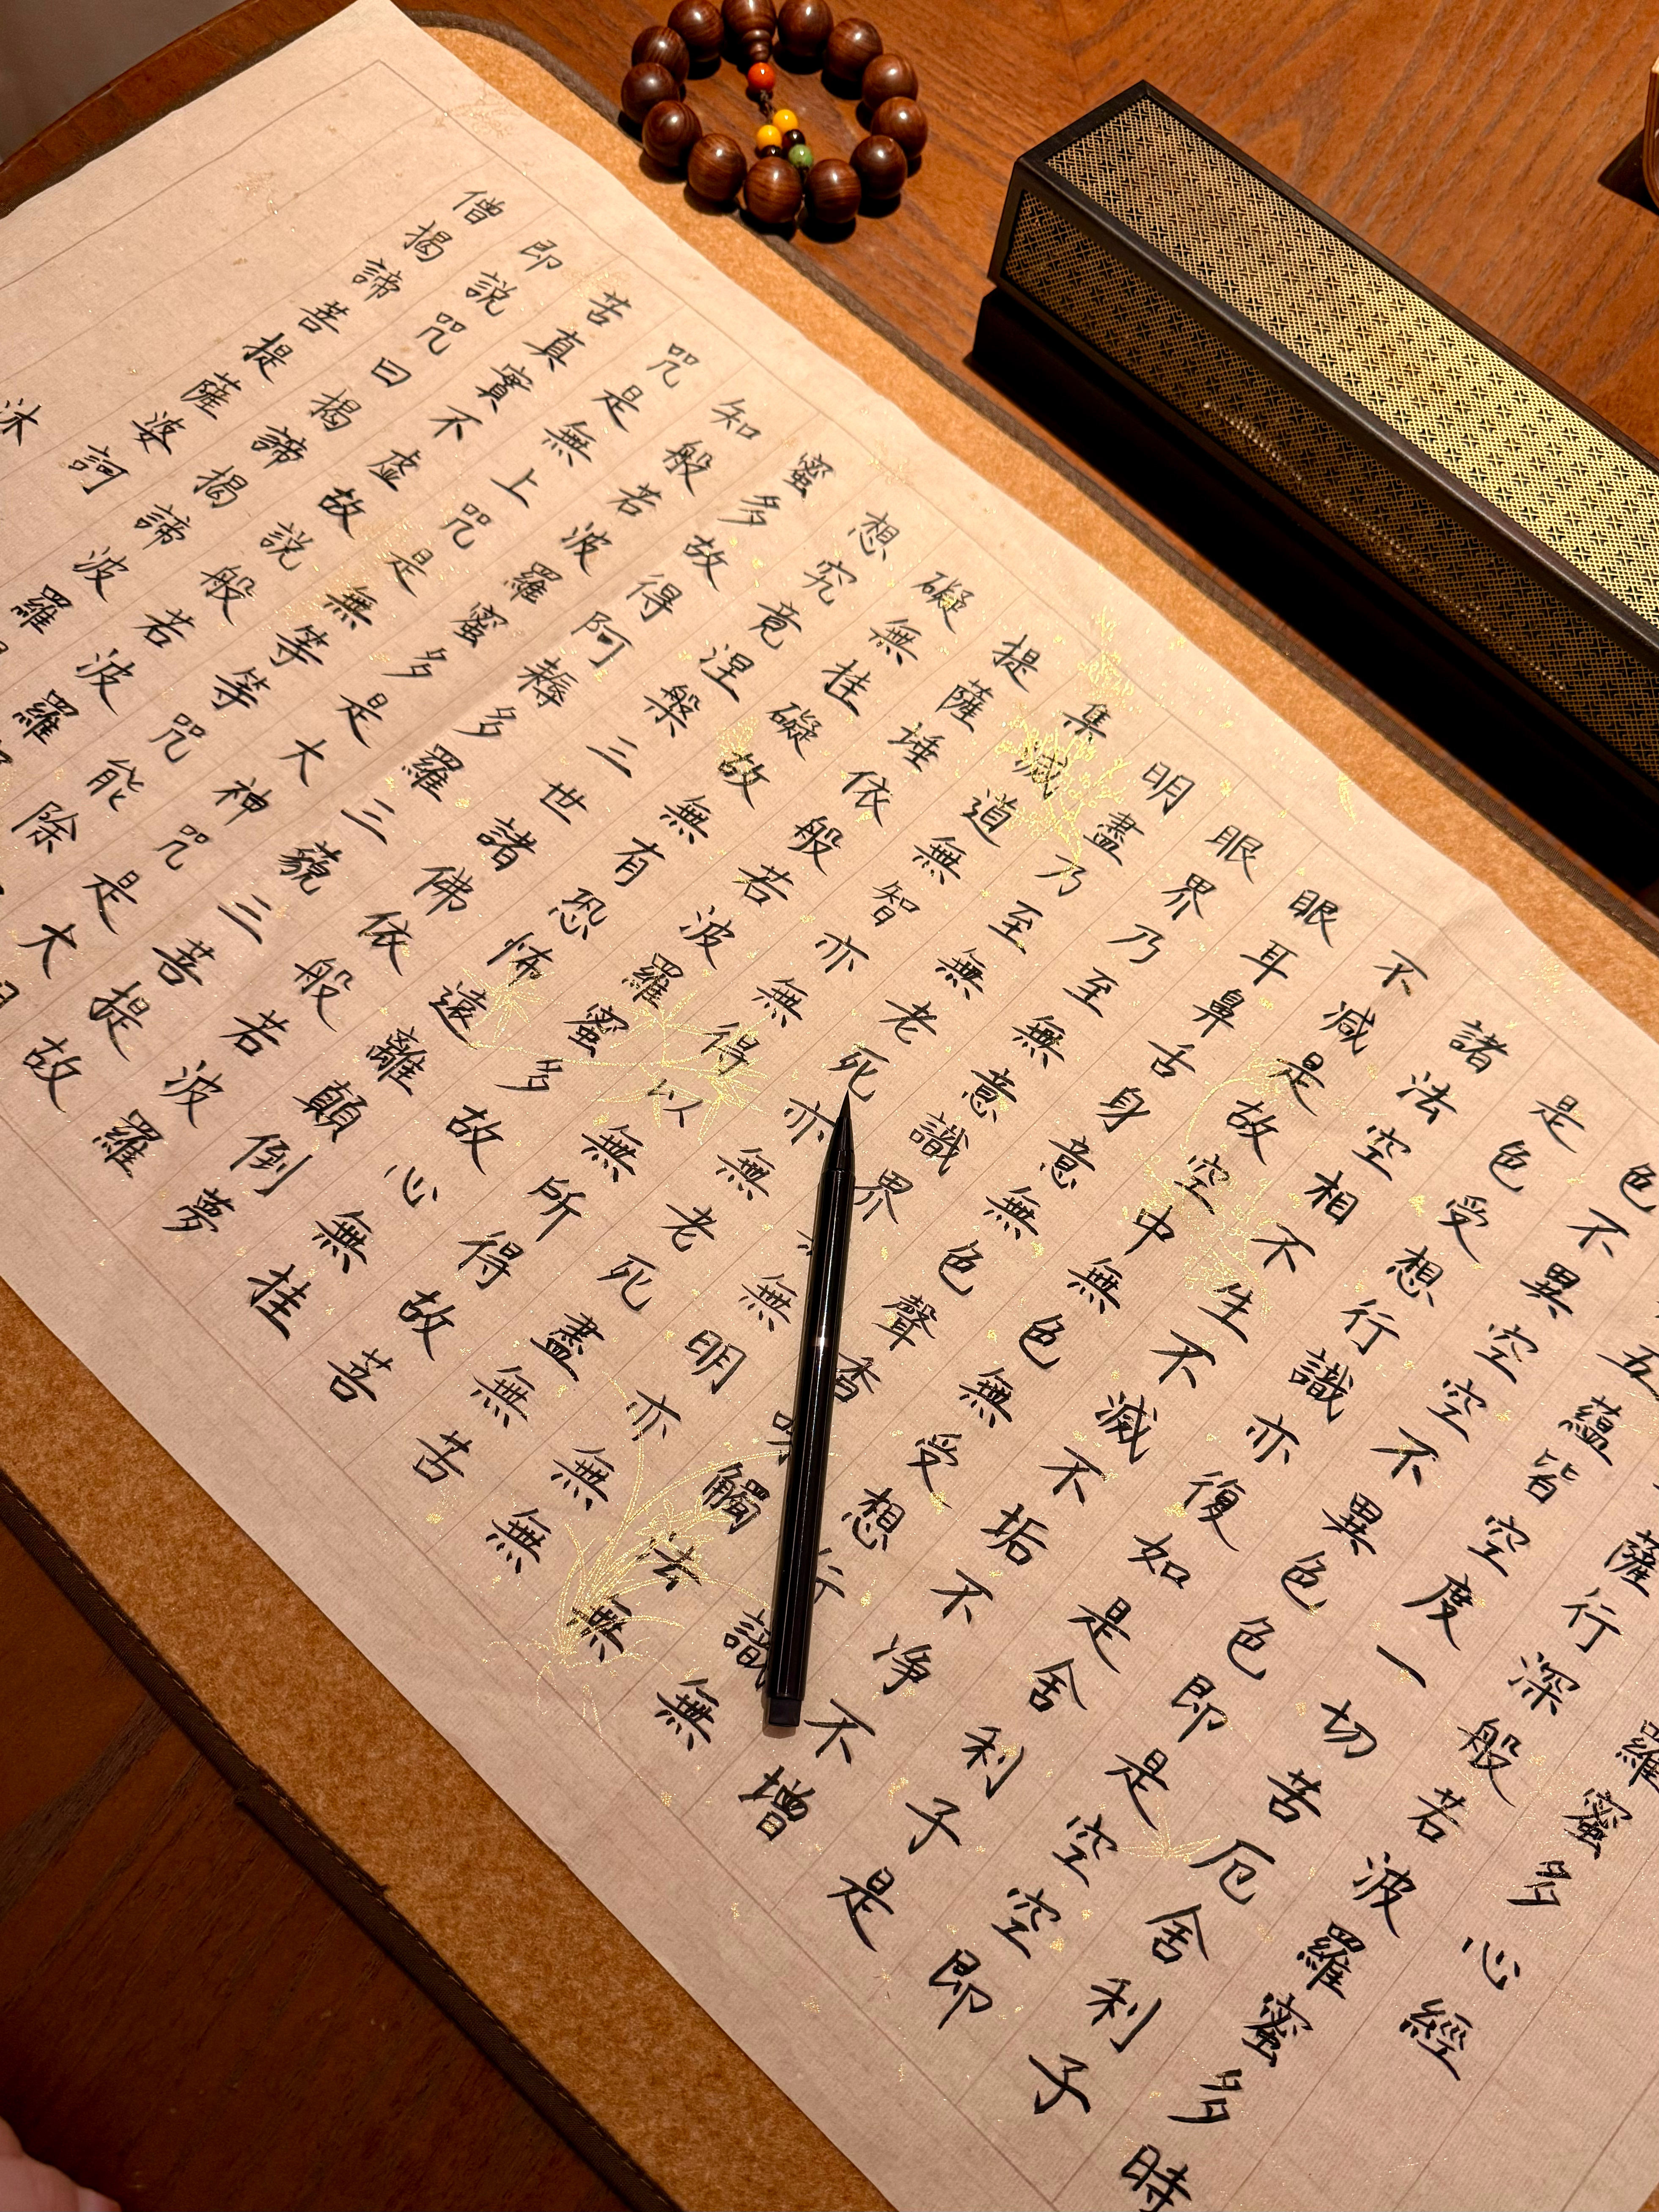 羅蜜多心經
薩行深般若波羅蜜多時
五蘊皆空度一切苦厄舍利子
色不異空空不異色色即是空空即
是色受想行識亦復如是舍利子是
諸法空相不生不滅不垢不淨不增
不減是故空中無色無受想行識無
眼耳鼻舌身意無色聲香味觸法無
眼界乃至無意識界無明亦無無
明盡乃至無老死亦無老死盡無苦
集滅道無智亦無得以無所得故菩
提薩埵依般若波羅蜜多故心無挂
礙無挂礙故無有恐怖遠離顛倒夢
想究竟涅槃三世諸佛依般若波羅
蜜多故得阿耨多羅三藐三菩提故
知般若波羅蜜多是大神咒是大
咒是無上咒是無等等咒能除
苦真實不虛故說般若波羅
即說咒曰揭諦揭諦波羅
僧揭諦菩提薩婆訶
沐